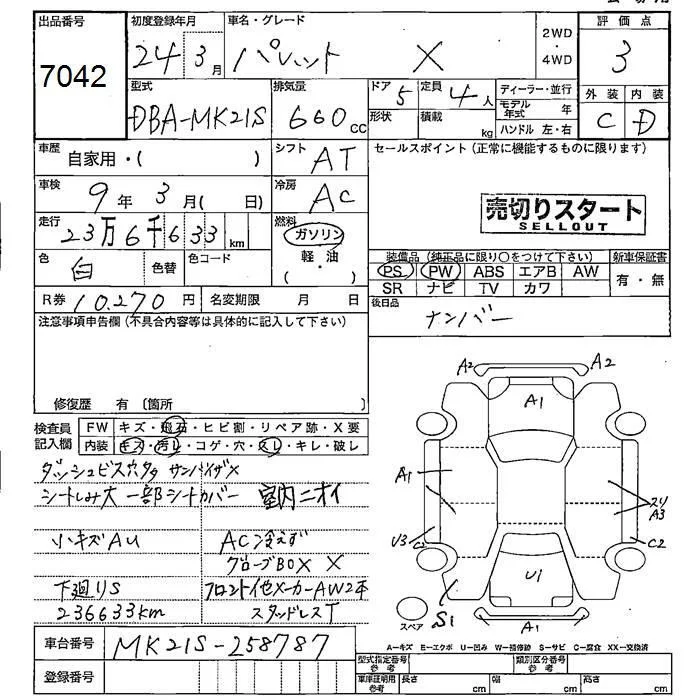 出品番号 7042
初度登録年月 24年 3月
車名・グレード パレット X
2WD・4WD
評価点 3
型式 DBA-MK21S
排気量 660cc
ドア 5 定員 4人
形状 積載 kg
ディーラー・並行
モデル年式 年
ハンドル 左・右
外装 内装
C D
車歴 自家用・( )
シフト AT
セールスポイント(正常に機能するものに限ります)
車検 9年 3月( 日)
冷房 AC
売切りスタート
SELLOUT
走行 23万6千633km
燃料 ガソリン 軽・油 ( )
色 白 色替 色コード
装備品(純正品に限り○をつけて下さい) 新車保証書
PS PW ABS エアB AW 有・無
SR ナビ TV カワ
R券 10,270円 名変期限 月 日
後日品 ナンバー
注意事項申告欄(不具合内容等は具体的に記入して下さい)
修復歴 有 〔箇所
検査員記入欄
FW キズ・飛石・ヒビ割・リペア跡・X要
内装 キズ・汚レ・コゲ・穴・スレ・キレ・破レ
ダッシュビス穴タタ サンバイザX
シートしみ大 一部シートカバー 室内ニオイ
小キズAU ACゝ冷えず
グローブBOX X
下廻りS フロント他メーカーAW2本
236633km スタッドレスT
A2 A2
A1
A1 スリ
A3
U3 C2 C2
U1
S1 A1
スペア
A-キズ E-エクボ U-凹み W-補修跡 S-サビ C-腐食 XX-交換済
車台番号 MK21S-258787
登録番号
型式指定番号 参考 類別区分番号 参考
車庫証明用 参考 長さ cm 幅 cm 高さ cm